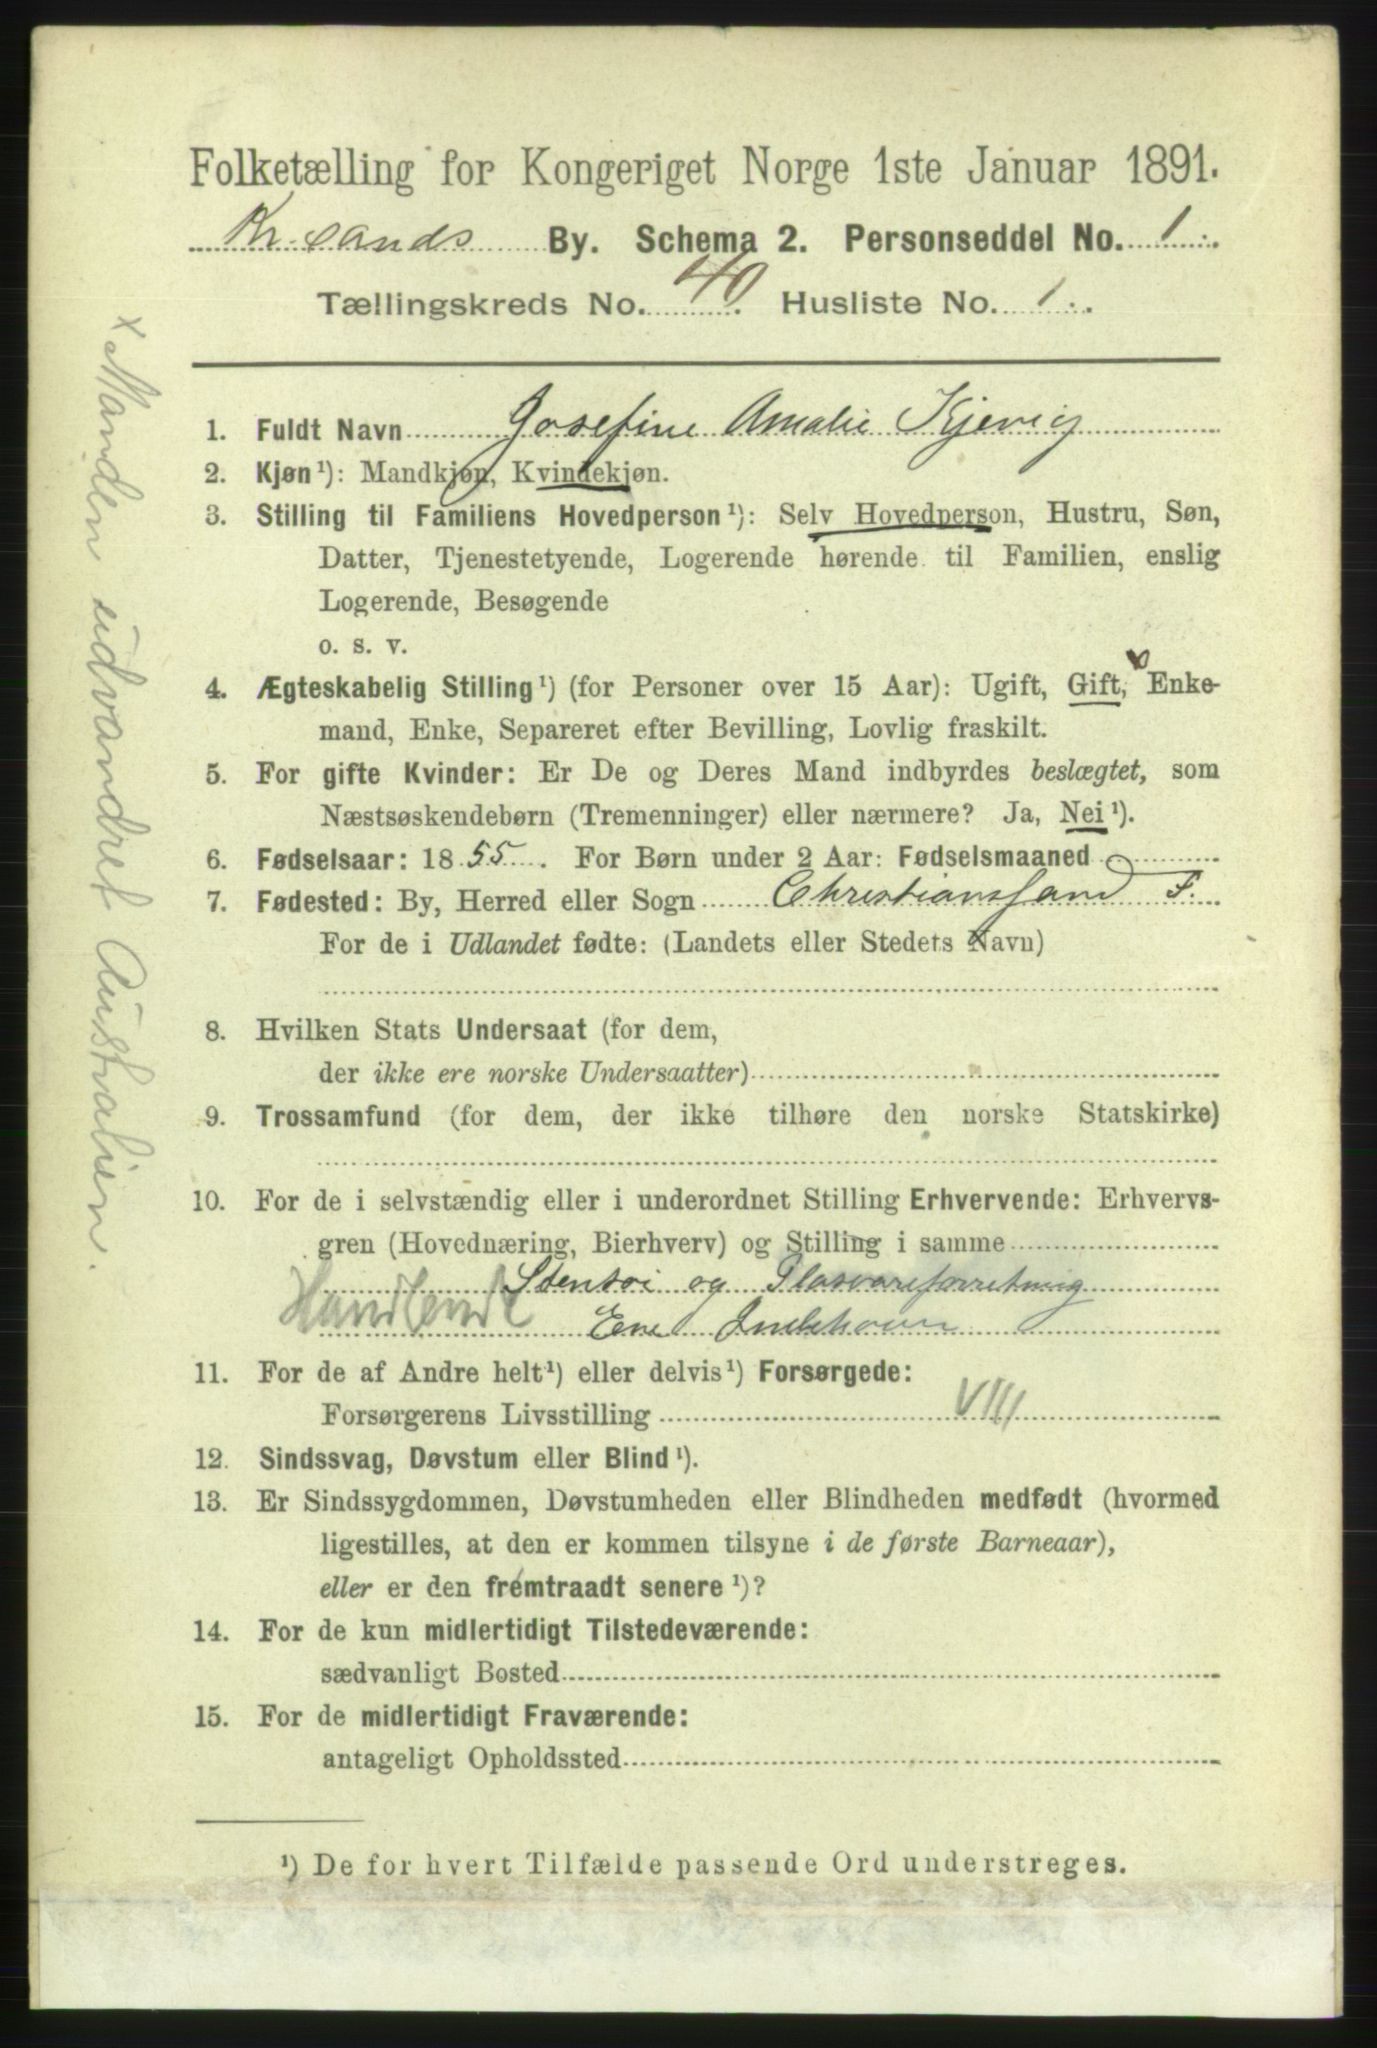 Folketælling for Kongeriget Norge 1ste Januar 1891.
Kr.sands By. Schema 2. Personseddel No. 1.
Tællingskreds No. 40. Husliste No. 1.
1. Fuldt Navn Josefine Amalie Kjevig
2. Kjøn¹): Mandkjøn, Kvindekjøn.
3. Stilling til Familiens Hovedperson¹): Selv Hovedperson, Hustru, Søn,
Datter, Tjenestetyende, Logerende hørende til Familien, enslig
Logerende, Besøgende
o. s. v.
4. Ægteskabelig Stilling¹) (for Personer over 15 Aar): Ugift, Gift, Enke-
mand, Enke, Separeret efter Bevilling, Lovlig fraskilt.
5. For gifte Kvinder: Er De og Deres Mand indbyrdes beslægtet, som
Næstsøskendebørn (Tremenninger) eller nærmere? Ja, Nei¹).
6. Fødselsaar: 1855. For Børn under 2 Aar: Fødselsmaaned
7. Fødested: By, Herred eller Sogn Christianssand
For de i Udlandet fødte: (Landets eller Stedets Navn)
8. Hvilken Stats Undersaat (for dem,
der ikke ere norske Undersaatter)
9. Trossamfund (for dem, der ikke tilhøre den norske Statskirke)
10. For de i selvstændig eller i underordnet Stilling Erhvervende: Erhvervs-
gren (Hovednæring, Bierhverv) og Stilling i samme
Stentøi og Glasvareforretning
Handlende Ene Indehaver
11. For de af Andre helt¹) eller delvis¹) Forsørgede:
Forsørgerens Livsstilling VIII
12. Sindssvag, Døvstum eller Blind¹).
13. Er Sindssygdommen, Døvstumheden eller Blindheden medfødt (hvormed
ligestilles, at den er kommen tilsyne i de første Barneaar),
eller er den fremtraadt senere¹)?
14. For de kun midlertidigt Tilstedeværende:
sædvanligt Bosted
15. For de midlertidigt Fraværende:
antageligt Opholdssted
¹) De for hvert Tilfælde passende Ord understreges.
x Manden udvandret Australien.